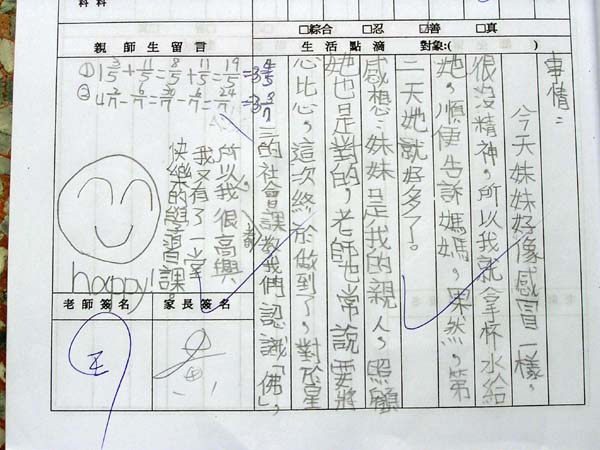 料料
□綜合 □忍 ☑善 □真
親師生留言
生活點滴 對象:( )
事情:
今天妹妹好像感冒一樣,
很沒精神,所以我就拿杯水給
她,順便告訴媽媽,果然,第
二天她就好多了。
感想:妹妹是我的親人,照顧
她也是對的,老師也常說要將
心比心,這次終於做到了,對於星
三的社會課教我們認識「佛」,
所以我很高興
我又有了一堂
快樂的學習課。
① 1 3/5 + 11/5 = 8/5 + 11/5 = 19/5 = 3 4/5
② 4 2/7 - 6/7 = 30/7 - 6/7 = 24/7 = 3 3/7
happy!
老師簽名
家長簽名